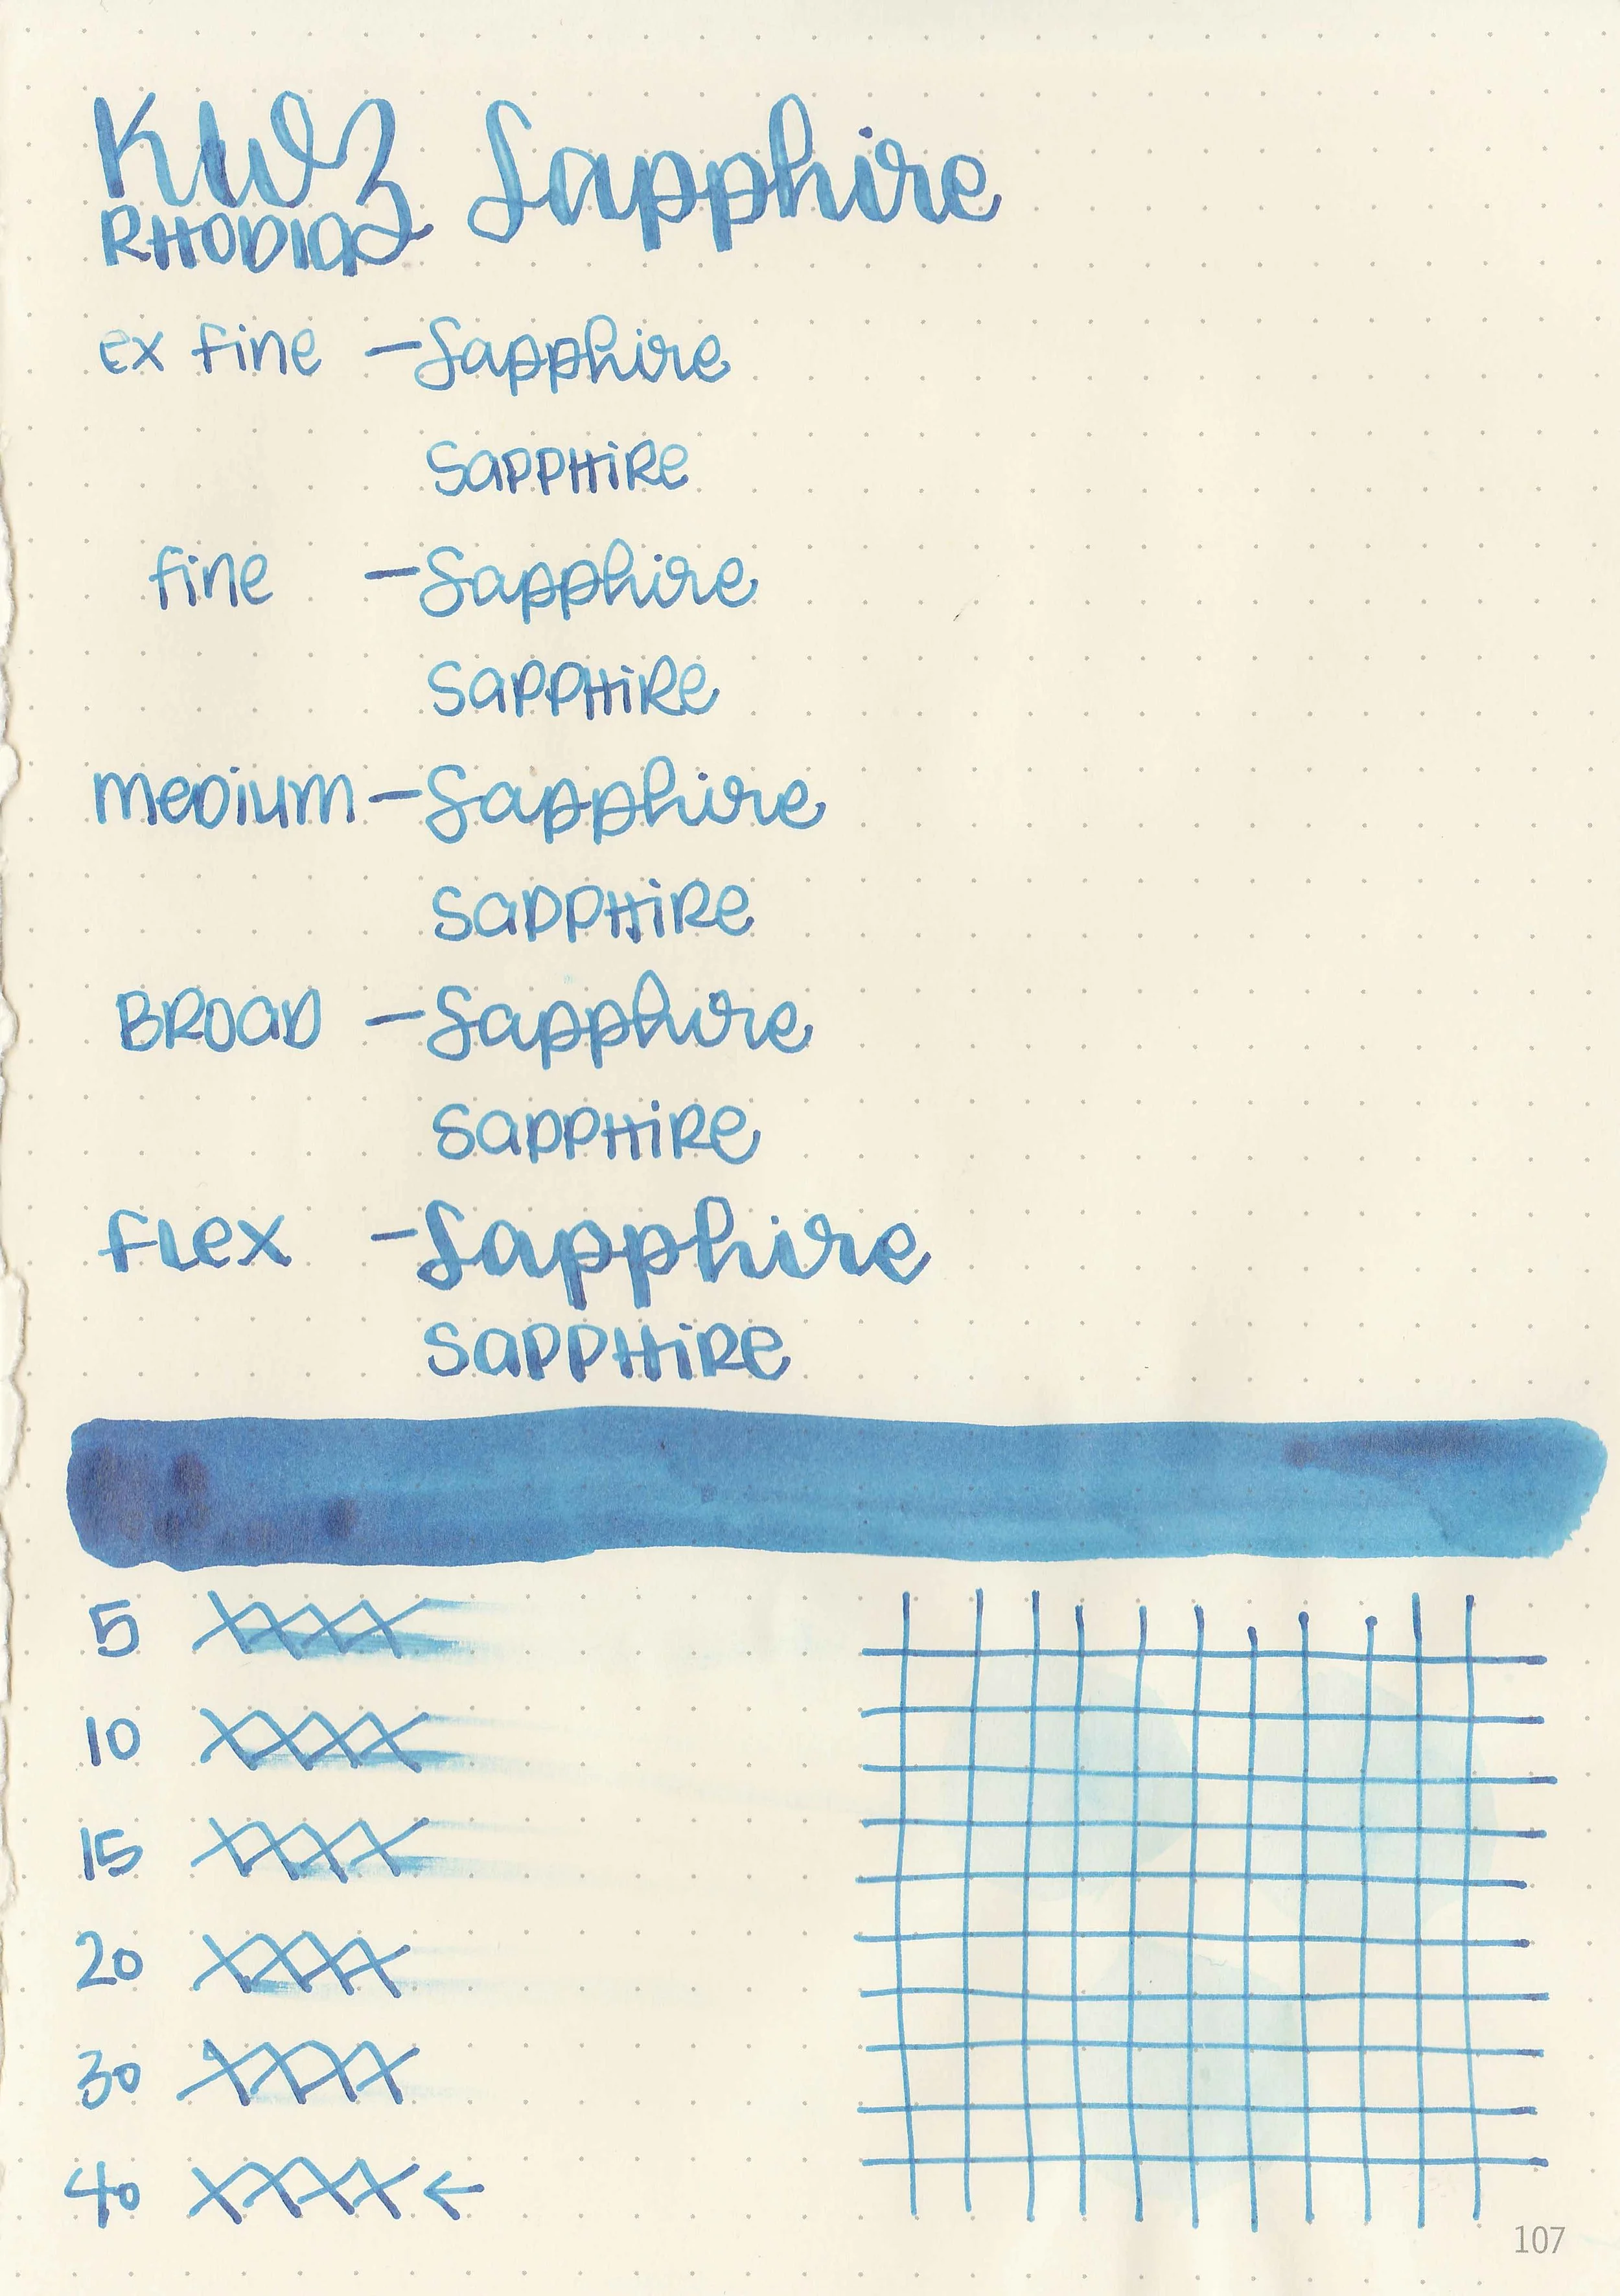 KWZ Sapphire
RHODIA
ex fine - Sapphire
SAPPHIRE
fine - Sapphire
SAPPHIRE
medium - Sapphire
SAPPHIRE
BROAD - Sapphire
SAPPHIRE
FLEX - Sapphire
SAPPHIRE
5 XXXX
10 XXXX
15 XXXX
20 XXXX
30 XXXX
40 XXXX ←
107